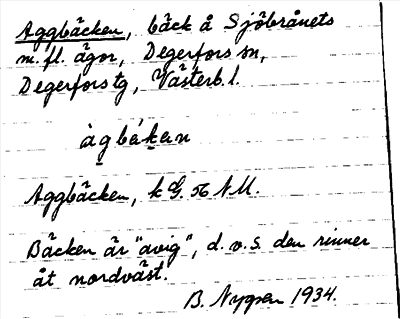 Aggbäcken, bäck å Sjöbrånets
m. fl. ägor, Degerfors sn,
Degerfors tg, Västerb. l.
àgbäḱan
Aggbäcken, k G. 56 NM.
Bäcken är "avig", d.v.s. den rinner
åt nordväst.
B. Nygren 1934.